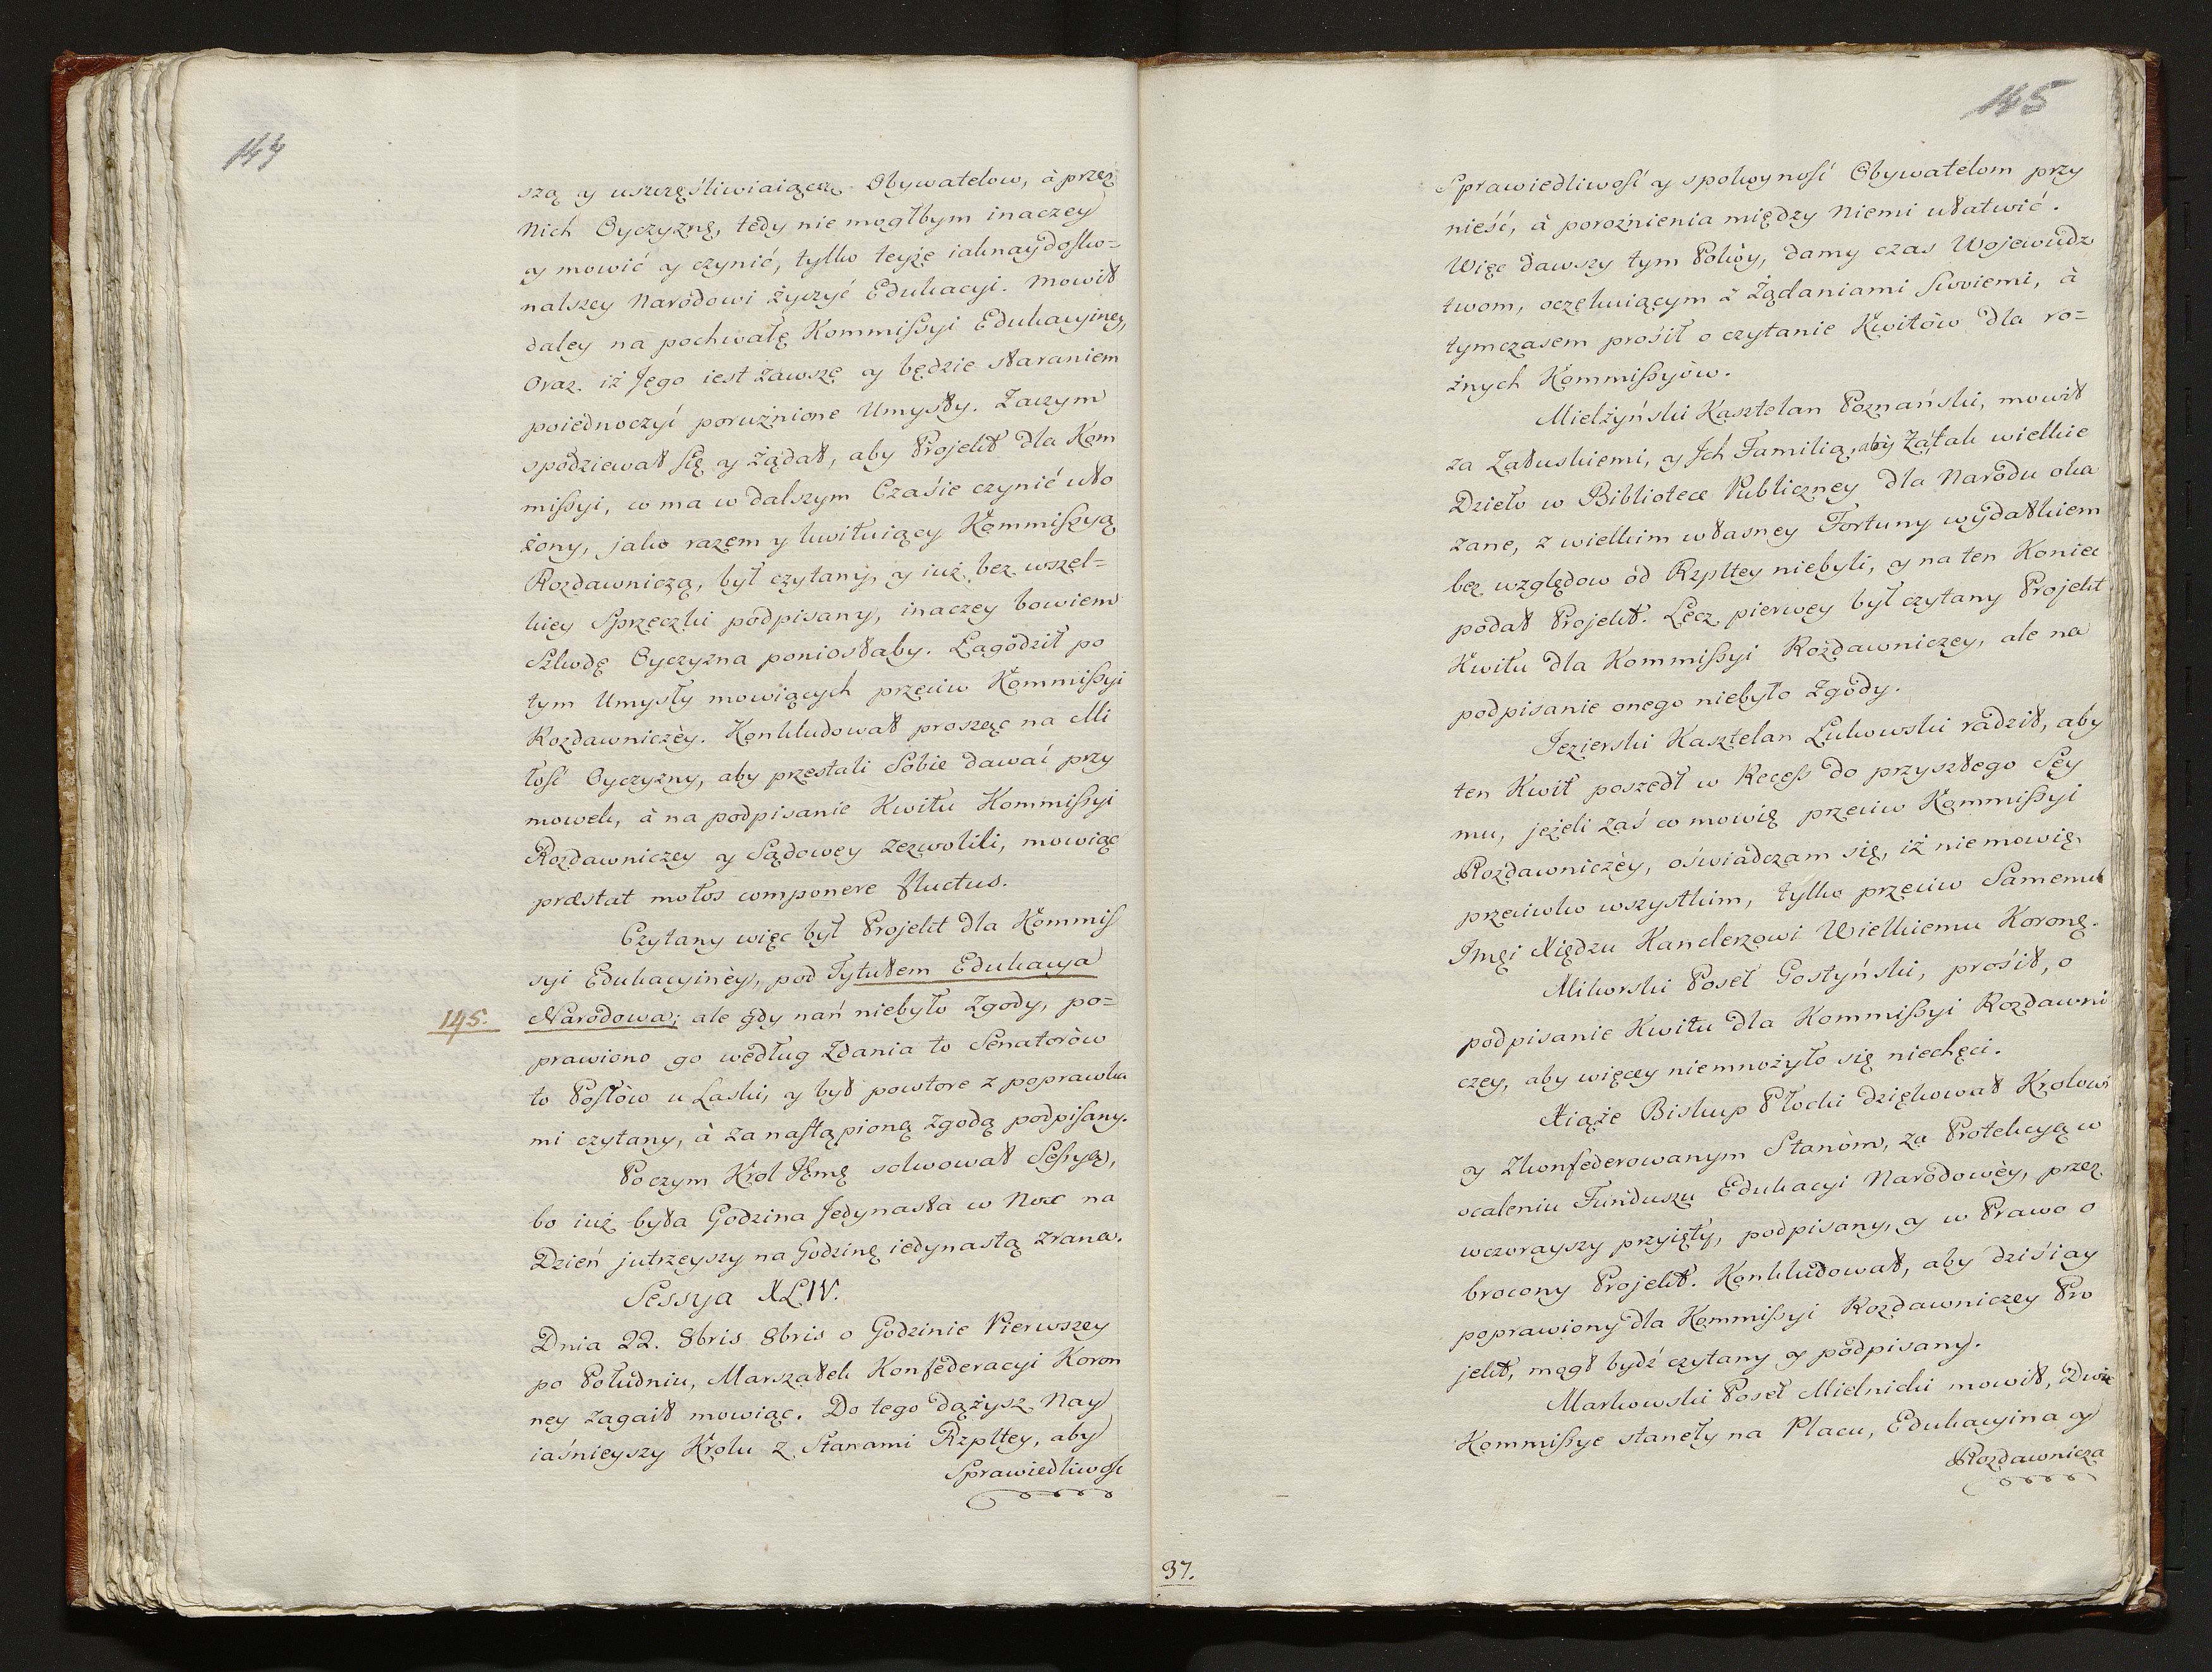 144
szą y uszczęśliwiaiącą Obywatelow, à przez
Nich Oyczyznę, tedy nie mogłbym inaczey
y mowić y czynić, tylko teyże iaknaydosko=
nalszey Narodowi życzyć Edukacyi. Mowił
daley na pochwałę Kommissyi Edukacyiney,
Oraz iż Jego iest zawsze y będzie staraniem
poiednoczyć porużnione Umysły. Zaczym
spodziewał się y żądał, aby Projekt dla Kom
missyi, co ma w dalszym Czasie czynić uło
żony, jako razem y kwituiący Kommissyą
Rozdawniczą, był czytany, y iuż bez wszel=
kiey Sprzeczki podpisany, inaczey bowiem
Szkodę Oyczyzna poniosłaby. Łagodził po
tym Umysły mowiących przeciw Kommissyi
Rozdawniczey. Konkludował prosząc na Mi
łość Oyczyzny, aby przestali Sobie dawać przy
mowek, à na podpisanie Kwitu Kommissyi
Rozdawniczey y Sądowey zezwolili, mowiąc
præstat motos componere fluctus.
Czytany więc był Projekt dla Kommis
syi Edukacyiney, pod Tytułem Edukacya
145. Narodowa; ale gdy nań niebyło Zgody, po=
prawiono go według Zdania to Senatorów
to Posłów u Laski, y był powtore z poprawka
mi czytany, à za nastąpioną zgodą podpisany.
Poczym Krol Jmę solwował Sessyą,
bo iuż była Godzina Jedynasta w Noc na
Dzień jutrzeyszy na Godzinę iedynastą zrana.
Sessya XLIV.
Dnia 22. 8bris 8bris o Godzinie Pierwszey
po Południu, Marszałek Konfederacyi Koron
ney zagaił mowiąc. Do tego dążysz Nay
iaśnieyszy Krolu z Stanami Rzpltey, aby
Sprawiedliwość
145
Sprawiedliwość y spokoyność Obywatelom przy
nieść, à poroźnienia między Niemi ułatwić.
Więc dawszy tym Pokòy, damy czas Wojewudz
twom, oczękuiącym z Żądaniami Swoiemi, à
tymczasem prosił o czytanie Kwitòw dla ro=
żnych Kommissyów.
Mielżyński Kasztelan Poznański, mowił
za Załuskiemi, y Ich Familią, aby Za tak wielkie
Dzieło w Bibliotece Publiczney dla Narodu oka
zane, z wielkim własney Fortuny wydatkiem
bez względow od Rzpltey niebyli, y na ten Koniec
podał Projekt. Lecz pierwey był czytany Projekt
Kwitu dla Kommissyi Rozdawniczey, ale na
podpisanie onego niebyło Zgody.
Jezierski Kasztelan Łukowski radził, aby
ten Kwit poszedł w Recess do przyszłego Sey
mu, jeżeli zaś co mowię przeciw Kommissyi
Rozdawniczèy, oświadczam się, iż niemowię
przeciwko wszystkim, tylko przeciw Samemu
Jmci Xiędzu Kanclerzowi Wielkiemu Koronę.
Mikorski Poseł Gostyński, prosił, o
podpisanie Kwitu dla Kommissyi Rozdawni
czey, aby więcey niemnożyło się niechęci.
Xiąże Biskup Płocki dziękował Krolowi
y Zkonfederowanym Stanòm, za Protekcyą w
ocaleniu Funduszu Edukacyi Narodowèy, przez
wczorayszy przyięty, podpisany, y w Prawo o
brocony Projekt. Konkludował, aby dziśiay
poprawiony dla Kommissyi Rozdawniczey Pro
jekt, mogł bydź czytany y podpisany.
Markowski Poseł Mielnicki mowił, Dwie
Kommissye stanęły na Placu, Edukacyina y
Rozdawnicza
37.